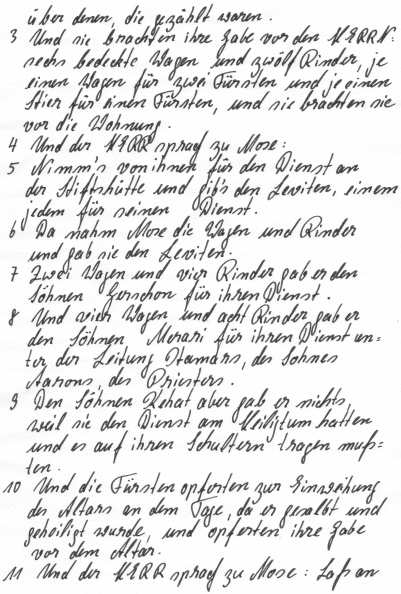 über denen, die gezählt waren.
3 Und sie brachten ihre Gabe vor den HERRN:
sechs bedeckte Wagen und zwölf Rinder, je
einen Wagen für zwei Fürsten und je einen
Stier für einen Fürsten, und sie brachten sie
vor die Wohnung.
4 Und der HERR sprach zu Mose:
5 Nimm's von ihnen für den Dienst an
der Stiftshütte und gib's den Leviten, einem
jedem für seinen Dienst.
6 Da nahm Mose die Wagen und Rinder
und gab sie den Leviten.
7 Zwei Wagen und vier Rinder gab er den
Söhnen Gerschon für ihren Dienst.
8 Und vier Wagen und acht Rinder gab er
den Söhnen Merari für ihren Dienst un=
ter der Leitung Itamars, des Sohnes
Aarons, des Priesters.
9 Den Söhnen Kehat aber gab er nichts,
weil sie den Dienst am Heiligtum hatten
und es auf ihren Schultern tragen muß=
ten.
10 Und die Fürsten opferten zur Einweihung
des Altars an dem Tage, da er gesalbt und
geheiligt wurde, und opferten ihre Gabe
vor dem Altar.
11 Und der HERR sprach zu Mose: Laß an